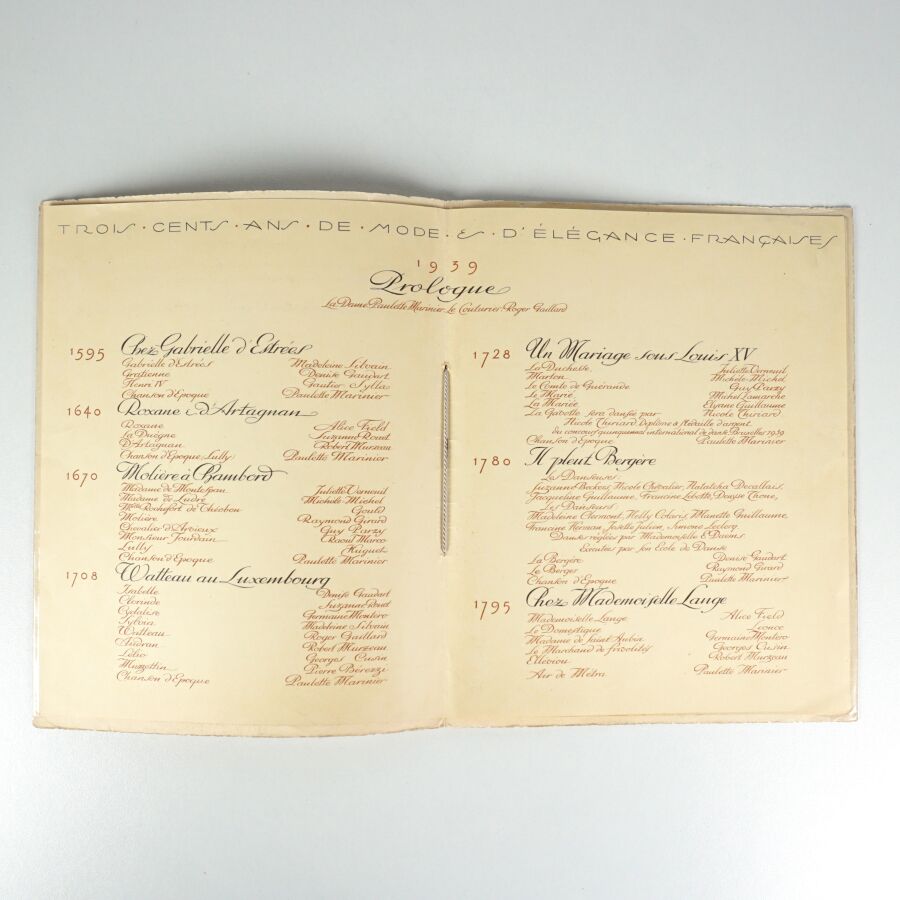 TROIS · CENTS · ANS · DE · MODE · & · D'ÉLÉGANCE · FRANÇAISES
1939
Prologue
La Dame Paulette Marinier Le Couturier Roger Gaillard
1595 Chez Gabrielle d'Estrées
Gabrielle d'Estrées Madeleine Silvain
Gratienne Denise Gaudart
Henri IV Gautier Sylla
Chanson d'Epoque Paulette Marinier
1640 Roxane & d'Artagnan
Roxane Alice Field
La Duègne Suzanne Rouet
D'Artagnan Robert Murzeau
Chanson d'Epoque, Lully Paulette Marinier
1670 Molière à Chambord
Madame de Montespan Juliette Verneuil
Madame de Ludre Michèle Michel
Rochefort de Théobon Gould
Molière Raymond Girard
Chevalier d'Arvieux Guy Parzy
Monsieur Jourdain Raoul Marco
Lully Huguet
Chanson d'Epoque Paulette Marinier
1708 Watteau au Luxembourg
Isabelle Denise Gaudart
Clorinde Suzanne Rouet
Cydalise Germaine Montero
Sylvia Madeleine Silvain
Watteau Roger Gaillard
Audran Robert Murzeau
Lélio Georges Cusin
Mezzettin Pierre Bérezzi
Chanson d'Epoque Paulette Marinier
1728 Un Mariage sous Louis XV
La Duchesse Juliette Verneuil
Marton Michèle Michel
Le Comte de Guérande Guy Parzy
Le Marié Michel Lamarche
La Mariée Elyane Guillaume
La Gavotte sera dansée par Nicole Churiard
Nicole Churiard Diplôme & Médaille d'argent
du concours quinquennal international de danse Bruxelles 1939
Chanson d'Epoque Paulette Marinier
1780 Il pleut Bergère
Les Danseuses
Suzanne Beckers, Nicole Chevalier, Natatcha Decallais,
Jacqueline Guillaume, Francine Lebotte, Denyse Thone,
Les Danseurs
Madeleine Clermont, Nelly Colaris, Manette Guillaume,
Francine Herman, Josette Julien, Simone Leclerq
Danses réglées par Mademoiselle E. Daems
Exécutées par son Ecole de Danse
La Bergère Denise Gaudart
Le Berger Raymond Girard
Chanson d'Epoque Paulette Marinier
1795 Chez Mademoiselle Lange
Mademoiselle Lange Alice Field
Le Domestique Leonce
Madame de Saint Aubin Germaine Montero
Le Marchand de frivolités Georges Cusin
Elleviou Robert Murzeau
Air de Paulette Marinier